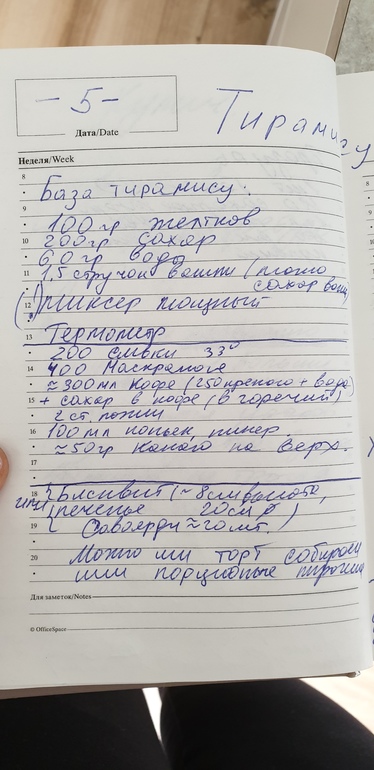 - 5 -
Дата/Date
Тирамису
Неделя/Week
8
База тирамису:
9
100гр желтков
10
200гр сахар
60гр вода
11
1,5 стручок ванили (можно
сахар ван)
12
(!) миксер мощный
13
Термометр
200 сливки 33%
14
400 Маскарпоне
≈300мл кофе (250 крепкого + вода)
15
+ сахар в кофе (в горячий)
2 ст. ложки
16
100мл коньяк, ликер
≈50гр какао на верх.
17
18
или
Бисквит (~8см высота,
печенье 20см
19
Савоярди ≈20шт.)
20
Можно или торт собираем
или порционные
Для заметок/Notes
© OfficeSpace
8
9